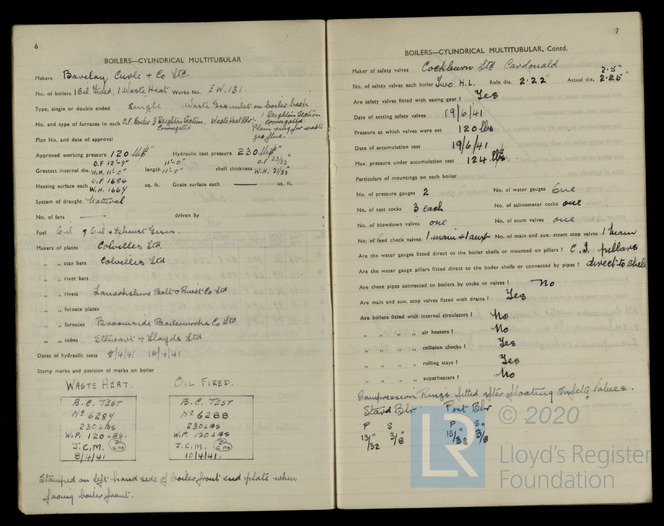 6
BOILERS—CYLINDRICAL MULTITUBULAR
Makers Barclay, Curle & Co Ltd
No. of boilers 1 Oil Fired, 1 Waste Heat Works No. EW.131
Type, single or double ended Single Waste Gas inlet on boiler back
No. and type of furnaces in each O.F. Boiler 3 Deighton Section Corrugated Waste Heat Blr. 1 Deighton Section corrugated
Plain ring for waste gas flue.
Plan No. and date of approval
Approved working pressure 120 lbs Hydraulic test pressure 230 lbs
Greatest internal dia. O.F 12'-9" W.H. 11'-0" length 11'-0" 11'-0" shell thickness O.F 23/32" W.H. 21/32"
Heating surface each O.F 1684 W.H. 1664 sq. ft. Grate surface each — sq. ft.
System of draught Natural
No. of fans — driven by
Fuel Oil & Exhaust Gases.
Makers of plates Colvilles Ltd
„ „ stay bars Colvilles Ltd
„ „ rivet bars
„ „ rivets Lanarkshire Bolt & Rivet Co Ltd
„ „ furnace plates
„ „ furnaces Broomside Boilerworks Co Ltd
„ „ tubes Stewart & Lloyds Ltd
Dates of hydraulic tests 8/4/41 10/4/41
Stamp marks and position of marks on boiler
WASTE HEAT. OIL FIRED.
B.C. TEST
No 6287
230 LBS
W.P. 120 LBS.
J.C.M.
8/4/41
B.C. TEST
No 6288
230 LBS
W.P. 120 LBS
J.C.M.
10/4/41.
Stamped on left hand side of boiler front end plate when
facing boiler front.
7
BOILERS—CYLINDRICAL MULTITUBULAR, Contd.
Maker of safety valves Cockburn Ltd Cardonald
No. of safety valves each boiler Two H.L. Rule dia. 2.22" Actual dia. 2.5" 2.25"
Are safety valves fitted with easing gear? Yes
Date of setting safety valves 19/6/41
Pressure at which valves were set 120 lbs
Date of accumulation test 19/6/41
Max. pressure under accumulation test 124 lbs
Particulars of mountings on each boiler
No. of pressure gauges 2 No. of water gauges One
No. of test cocks 3 each No. of salinometer cocks one
No. of blowdown valves one No. of scum valves one
No. of feed check valves 1 main & 1 aux No. of main and aux. steam stop valves 1 main
Are the water gauges fitted direct to the boiler shells or mounted on pillars? C.I. pillars
Are the water gauge pillars fitted direct to the boiler shells or connected by pipes? direct to shells
Are these pipes connected to boilers by cocks or valves? No
Are main and aux. stop valves fitted with drains? Yes
Are boilers fitted with internal circulators? No
„ „ „ „ air heaters? No
„ „ „ „ collision chocks? Yes
„ „ „ „ rolling stays? Yes
„ „ „ „ superheaters? No
Compression rings fitted after floating Safety Valves.
Starbd Blr Port Blr
P S P S
13/32" 3/8 13/32" 3/8
© 2020
LR
Lloyd's Register
Foundation